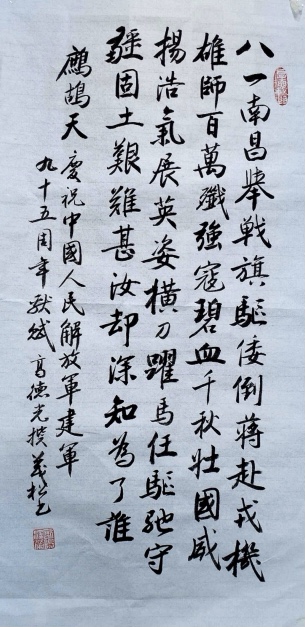 八一南昌举戰旗驅倭倒蔣赴戎機
雄師百萬殲強寇碧血千秋壯國威
揚浩氣展英姿橫刀躍馬任驅馳守
疆固土艱難甚汝却深知為了誰
鷓鴣天 慶祝中國人民解放軍建軍
九十五周年 高德光撰